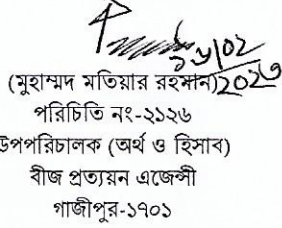 ১৬/০২/২০২৩
(মুহাম্মদ মতিয়ার রহমান)
পরিচিতি নং-২১২৬
উপপরিচালক (অর্থ ও হিসাব)
বীজ প্রত্যয়ন এজেন্সী
গাজীপুর-১৭০১